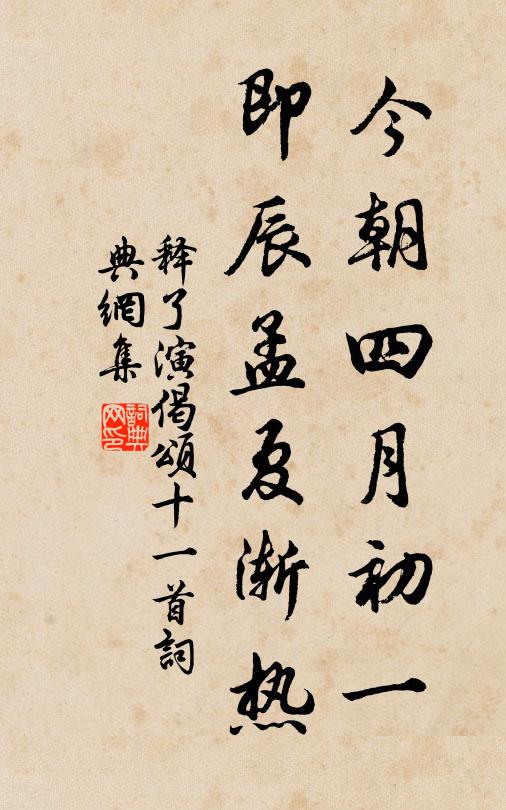 今朝四月初一
即辰孟夏渐热
释了演偈頌十一首詞
典網集
詞典网印